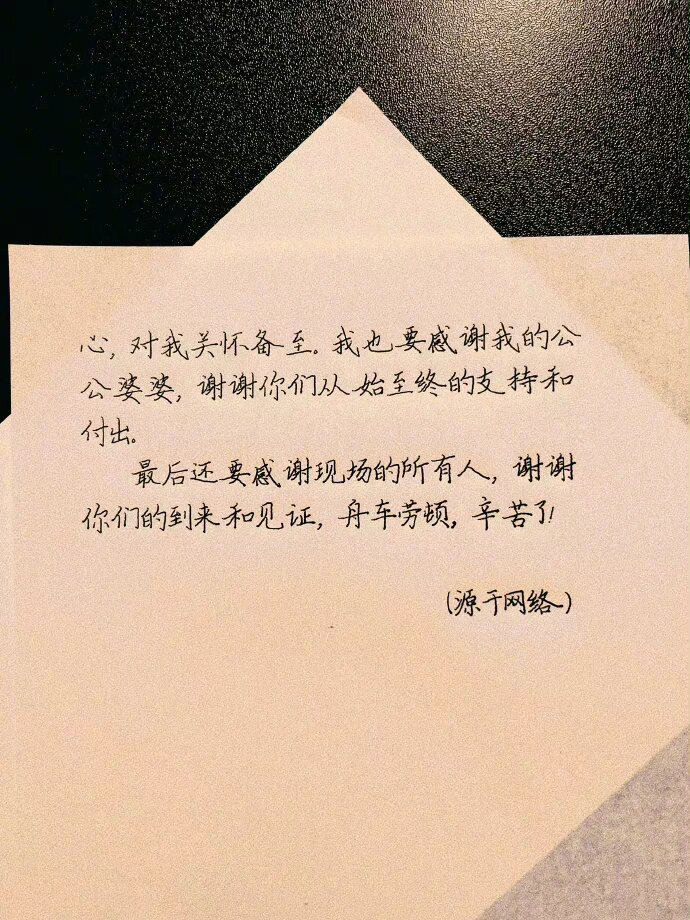 心, 对我关怀备至。我也要感谢我的公
公婆婆, 谢谢你们从始至终的支持和
付出。
最后还要感谢现场的所有人, 谢谢
你们的到来和见证, 舟车劳顿, 辛苦了!
(源于网络)